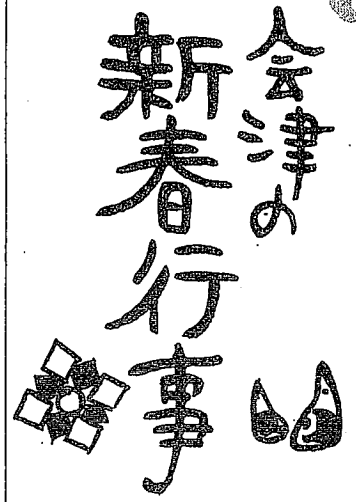 会津の
新春行事